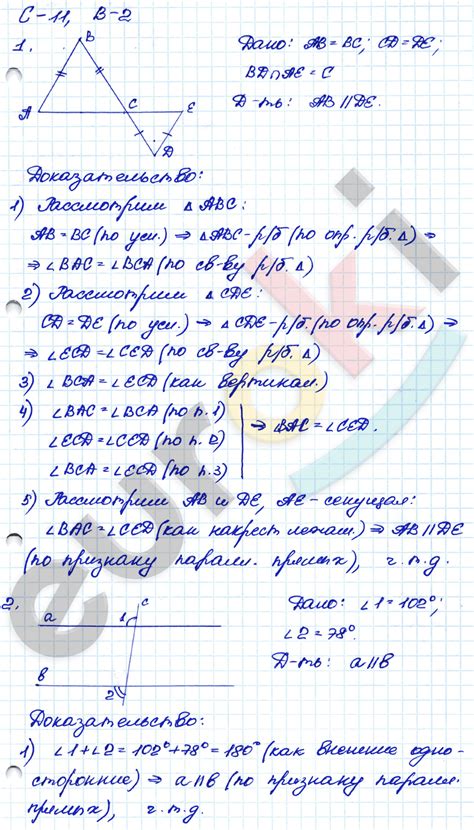 С-11, В-2
1.
B
A
C
E
D
Дано: AB=BC; CD=DE;
BD∩AE=C
Д-ть: AB∥DE.
Доказательство:
1) Рассмотрим △ABC:
AB=BC (по усл.) ⇒ △ABC-р/б (по опр. р/б. △) ⇒
⇒ ∠BAC=∠BCA (по св-ву р/б. △)
2) Рассмотрим △CDE:
CD=DE (по усл.) ⇒ △CDE-р/б. (по опр. р/б. △) ⇒
⇒ ∠ECD=∠CED (по св-ву р/б. △)
3) ∠BCA=∠ECD (как вертикал.)
4) ∠BAC=∠BCA (по п. 1)
∠ECD=∠CED (по п. 2)
∠BCA=∠ECD (по п. 3)
⇒ ∠BAC=∠CED.
5) Рассмотрим AB и DE, AE-секущая:
∠BAC=∠CED (как накрест лежащ.) ⇒ AB∥DE
(по признаку паралл. прямых), ч.т.д.
2.
c
a
1
b
2
Дано: ∠1=102°;
∠2=78°.
Д-ть: a∥b
Доказательство:
1) ∠1+∠2=102°+78°=180° (как внешние одно-
сторонние) ⇒ a∥b (по признаку паралл.
прямых), ч.т.д.
euroki